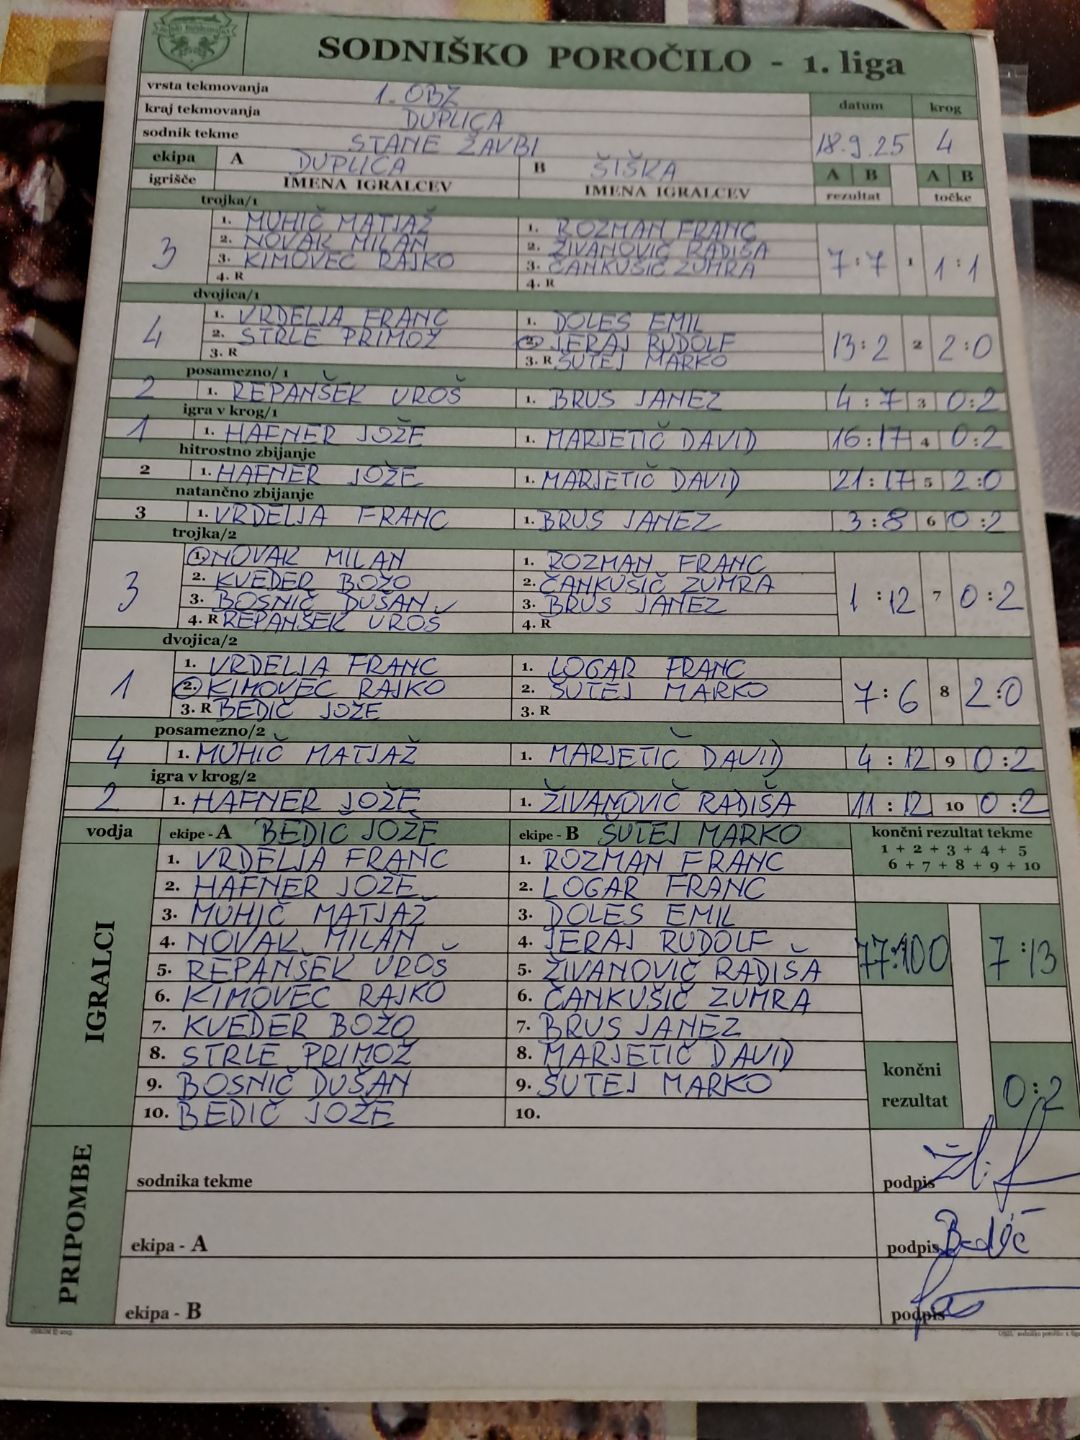 SODNIŠKO POROČILO - 1. liga
vrsta tekmovanja 1. OBZ datum krog
kraj tekmovanja DUPLICA
sodnik tekme STANE ŽAVBI 18.9.25 4
ekipa A DUPLICA B ŠIŠKA A B A B
igrišče IMENA IGRALCEV IMENA IGRALCEV rezultat točke
trojka/1
1. MUHIČ MATJAŽ 1. ROZMAN FRANC
3 2. NOVAK MILAN 2. ŽIVANOVIČ RADIŠA 7:7 1 1:1
3. KIMOVEC RAJKO 3. ČANKUŠIČ ZUMRA
4. R 4. R
dvojica/1
1. VRDELJA FRANC 1. DOLES EMIL
4 2. STRLE PRIMOŽ 2. JERAJ RUDOLF 13:2 2 2:0
3. R 3. R ŠUTEJ MARKO
posamezno/1
2 1. REPANŠEK UROŠ 1. BRUS JANEZ 4:7 3 0:2
igra v krog/1
1 1. HAFNER JOŽE 1. MARJETIČ DAVID 16:17 4 0:2
hitrostno zbijanje
2 1. HAFNER JOŽE 1. MARJETIČ DAVID 21:17 5 2:0
natančno zbijanje
3 1. VRDELJA FRANC 1. BRUS JANEZ 3:8 6 0:2
trojka/2
1. NOVAK MILAN 1. ROZMAN FRANC
2. KVEDER BOŽO 2. ČANKUŠIČ ZUMRA
3 3. BOSNIČ DUŠAN 3. BRUS JANEZ 1:12 7 0:2
4. R REPANŠEK UROŠ 4. R
dvojica/2
1. VRDELJA FRANC 1. LOGAR FRANC
1 2. KIMOVEC RAJKO 2. ŠUTEJ MARKO 7:6 8 2:0
3. R BEDIČ JOŽE 3. R
posamezno/2
4 1. MUHIČ MATJAŽ 1. MARJETIČ DAVID 4:12 9 0:2
igra v krog/2
2 1. HAFNER JOŽE 1. ŽIVANOVIČ RADIŠA 11:12 10 0:2
vodja ekipe - A BEDIČ JOŽE ekipe - B ŠUTEJ MARKO končni rezultat tekme
1 + 2 + 3 + 4 + 5
6 + 7 + 8 + 9 + 10
IGRALCI
1. VRDELJA FRANC 1. ROZMAN FRANC
2. HAFNER JOŽE 2. LOGAR FRANC
3. MUHIČ MATJAŽ 3. DOLES EMIL
4. NOVAK MILAN 4. JERAJ RUDOLF 77:100 7:13
5. REPANŠEK UROŠ 5. ŽIVANOVIČ RADIŠA
6. KIMOVEC RAJKO 6. ČANKUŠIČ ZUMRA
7. KVEDER BOŽO 7. BRUS JANEZ
8. STRLE PRIMOŽ 8. MARJETIČ DAVID končni
9. BOSNIČ DUŠAN 9. ŠUTEJ MARKO rezultat 0:2
10. BEDIČ JOŽE 10.
PRIPOMBE
sodnika tekme podpis
ekipa - A podpis Bedič
ekipa - B podpis